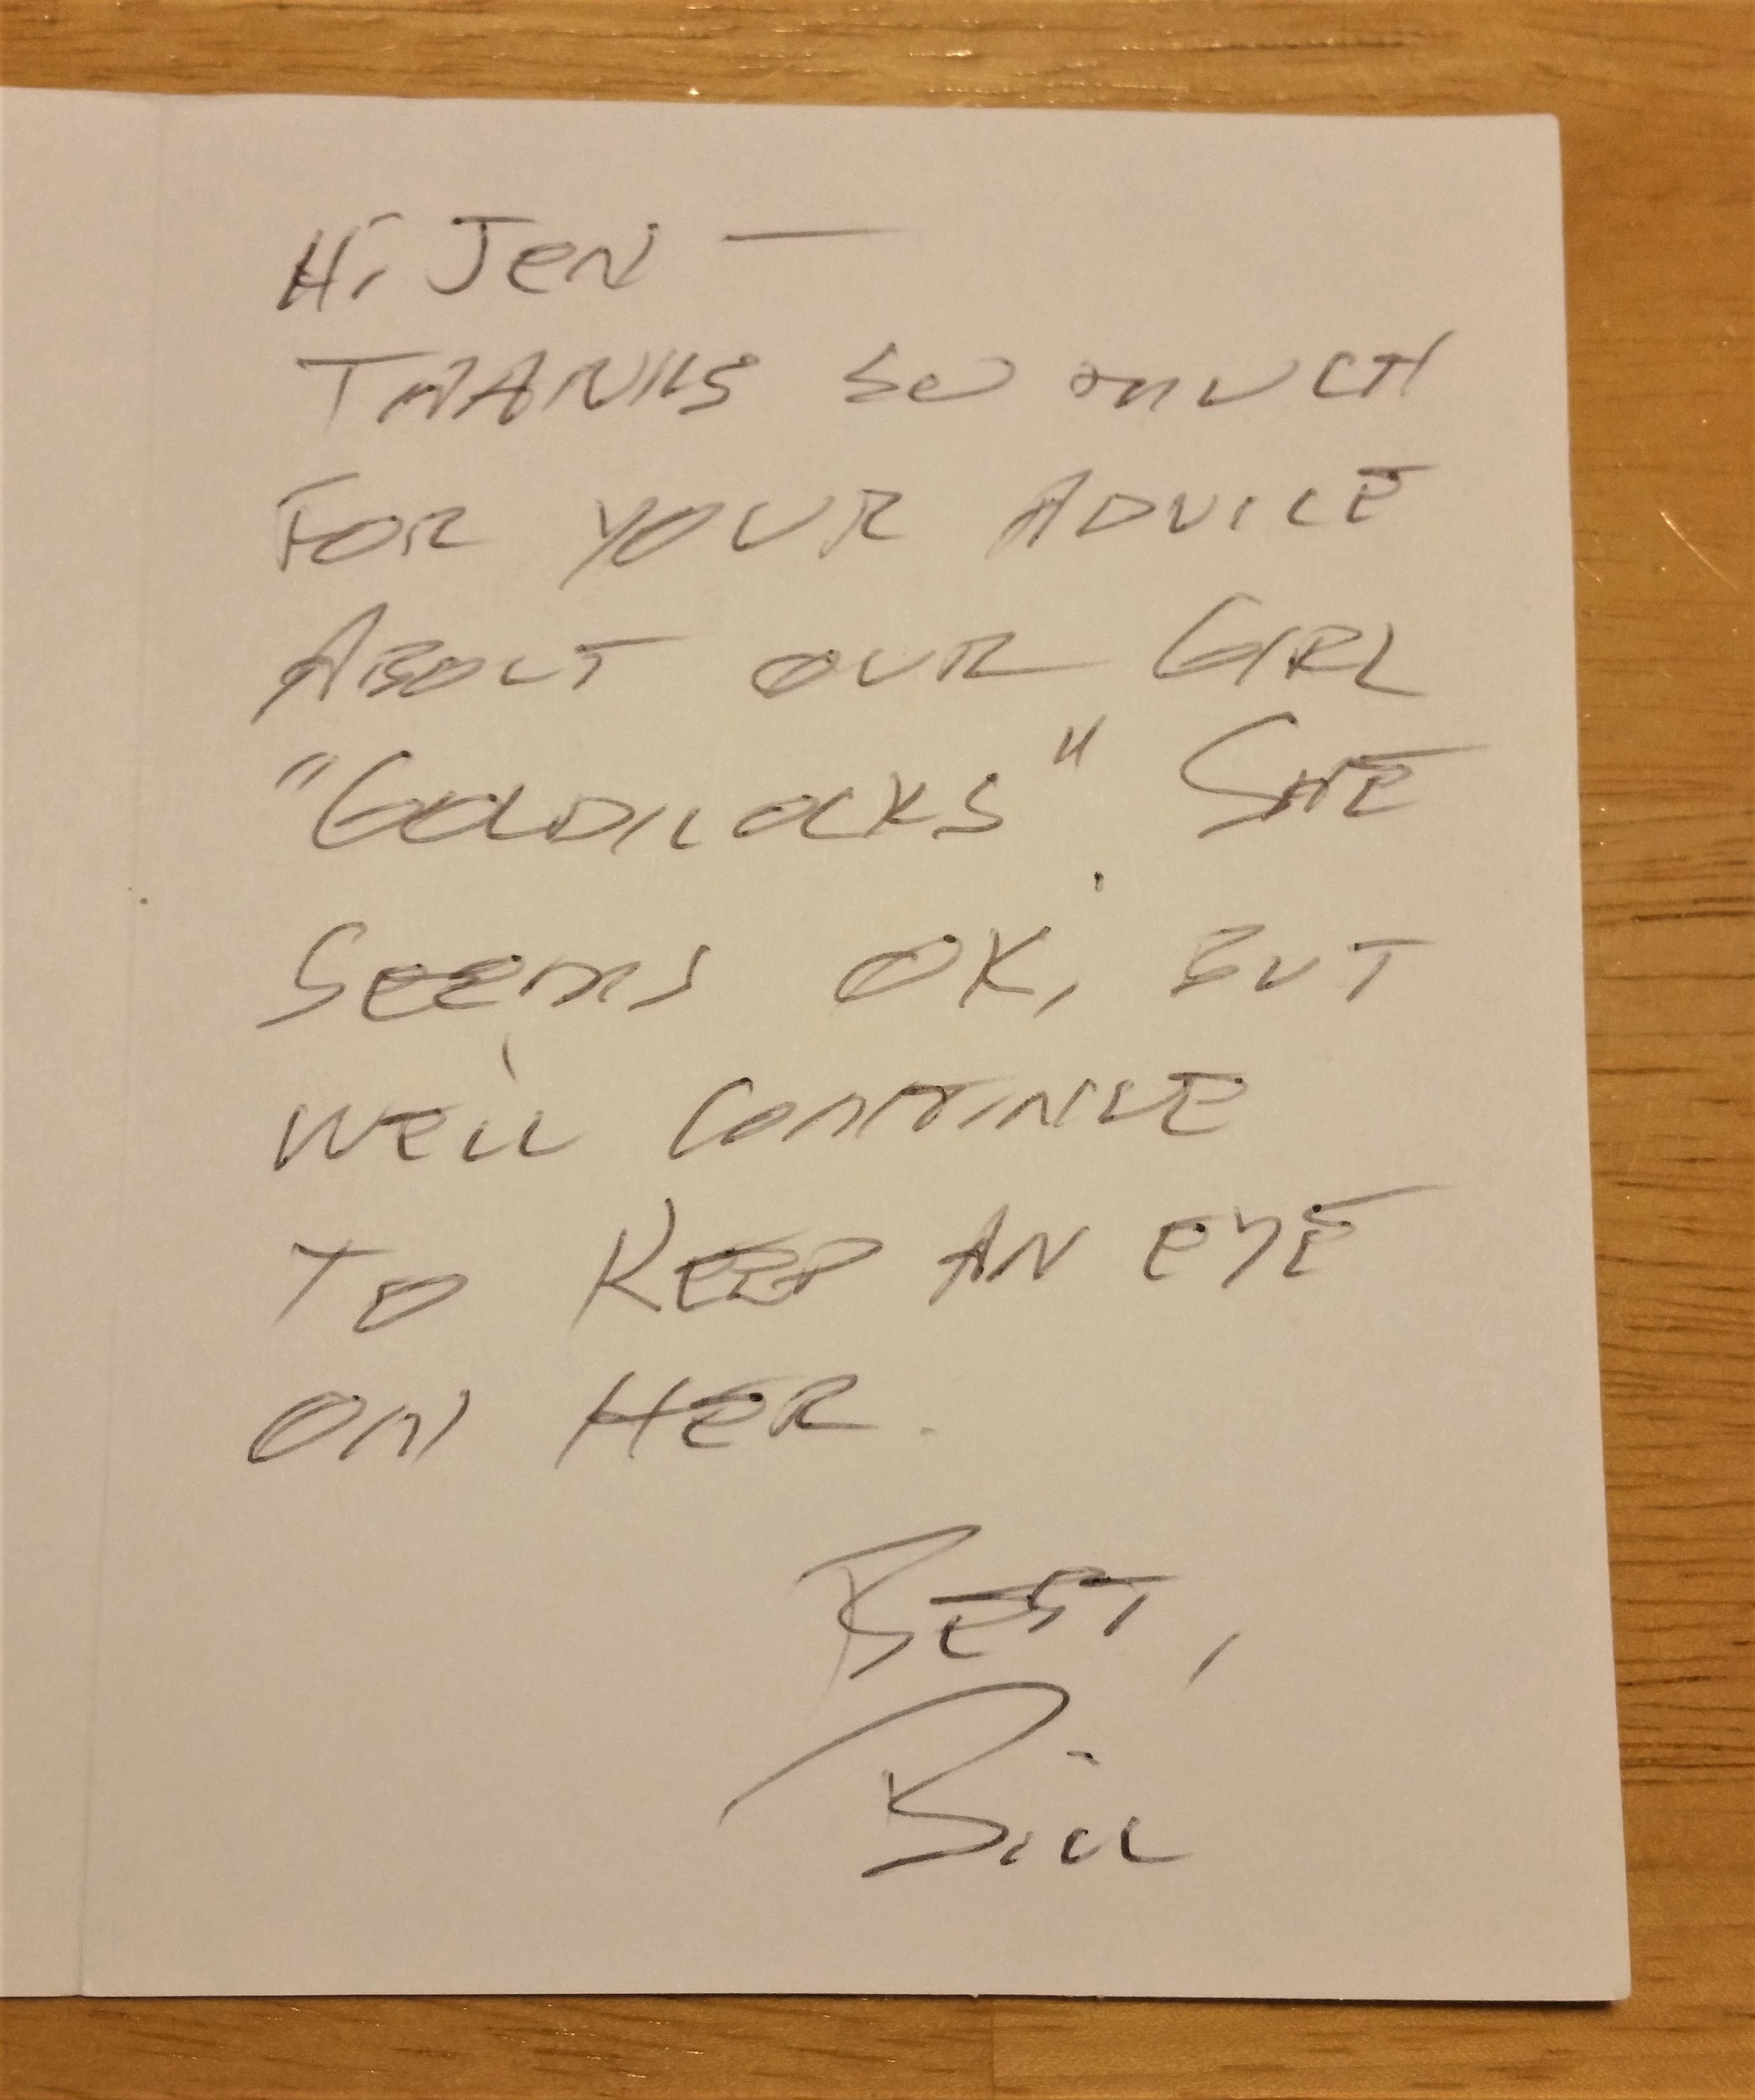 Hi Jen —
THANKS SO MUCH
FOR YOUR ADVICE
ABOUT OUR GIRL
"GOLDILOCKS". SHE
SEEMS OK, BUT
WE'LL CONTINUE
TO KEEP AN EYE
ON HER.
BEST,
Bill